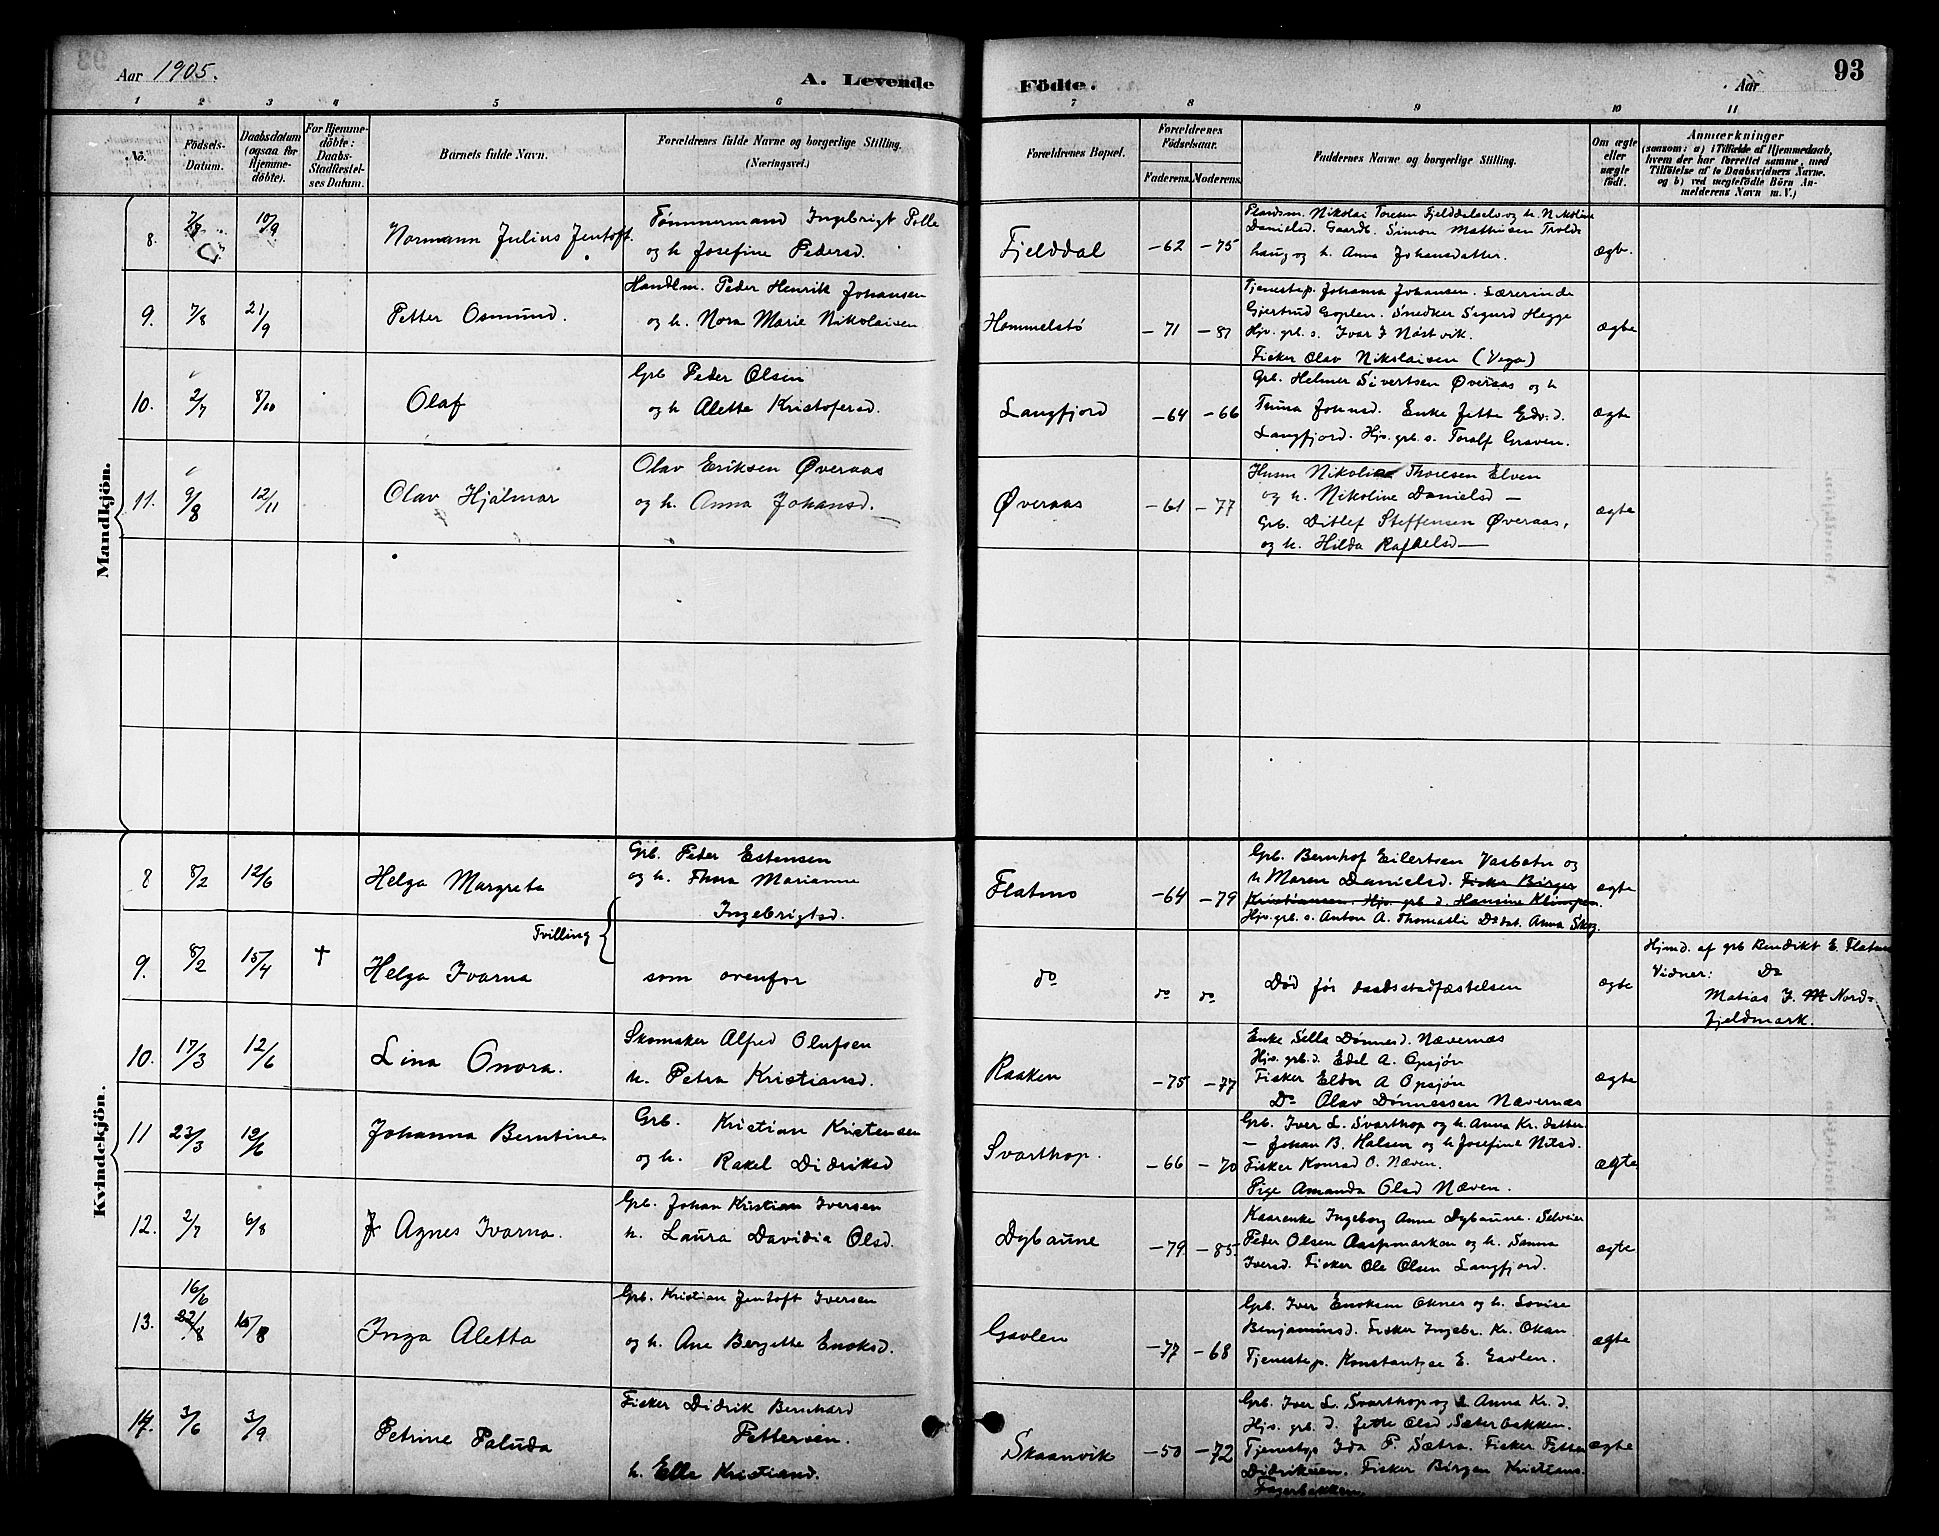 Aar 1905.
A. Levende
Födte.
Aar
93
1 2 3 4 5 6 7 8 9 10 11
No.
Födsels-Datum.
Daabsdatum (ogsaa for Hjemmedöbte).
For Hjemmedöbte: Daabs-Stadfæstelses Datum.
Barnets fulde Navn.
Forældrenes fulde Navne og borgerlige Stilling. (Næringsvei.)
Forældrenes Bopæl.
Forældrenes Födselsaar.
Faderens. Moderens.
Faddernes Navne og borgerlige Stilling.
Om ægte eller uægte födt.
Anmærkninger
(saasom: a) i Tilfælde af Hjemmedaab, hvem der har forrettet samme, med Tilföielse af to Daabsvidners Navne. og b) ved uegtefödte Börn Anmelderens Navn m. V.)
Mandkjön.
8. 10/9 Normann Julius Jentoft.
Tømmermand Ingebrigt Polle
og h Josefine Pedersd.
Fjelddal -62 -75
Nikolai Toresen Fjelddalselv og h. Nikoline
Danielsd. Gaardb. Simon Mathisen Trolds
haug og h. Anna Johansdatter.
ægt.
9. 7/8 21/9 Petter Osmund.
Handlm. Peder Henrik Johansen
og h. Nora Marie Nikolaisen
Hommelstø -71 -81
Tjenestep. Johanna Johansen. Lærerinde
Gjertrud Goplen. Snedker Sigurd Hegge
Hjv. grb. s. Ivar J Nøstvik.
Fisker Olav Nikolaisen (Vega)
ægte
10. 2/7 8/10 Olaf
Grb Peder Olsen
og h. Aletta Kristofersd.
Langfjord -64 -66
Grb. Helmer Sivertsen Øveraas og h
Johnsd. Enke Jette Edv. d.
Langfjord. Hjv. grb. s. Toralf Graven.
ægte
11. 9/8 12/11 Olav Hjalmar
Olav Eriksen Øveraas
og h. Anna Johansd.
Øveraas -61 -77
Husm Nikolai Thoresen Elven
og h. Nikoline Danielsd —
Grb. Ditlef Steffensen Øveraas,
og h. Hilda Rafaelsd —
ægte
Kvindekjön.
8 8/2 12/6 Helga Margrete
Grb. Peder Estensen
og h. Thora Marianne
Ingebrigtsd.
Flatmo -64 -79
Grb. Bernhof Eilertsen Vasbotn og
h Maren Danielsd. Fisker Birger
Kristiansen. Hjv. grb d. Hansine Klimpen.
Hjv. grb. s. Anton A. Thomasli Do dat. Anna Skog
ægte
Tvilling
9. 8/2 15/4 † Helga Ivarna
som ovenfor
do do do
Død før daabsstadfæstelsen
ægte
Hjmd. af grb Bendikt E. Flatmo
Vidner: Do
Matias J. M Nord-
fjeldmark.
10. 17/3 12/6 Lina Onora.
Skomaker Alfred Olufsen
h. Petra Kristiansd.
Raaken -75 -77
Enke Sella Dønnesd. Nævernæs
Hjv. grb. d. Edel A. Opsjøn
Fisker Eldor A Opsjøn
Do Olav Dønnessen Nævernæs
ægte
11 23/3 12/6 Johanna Berntine
Grb. Kristian Kristensen
og h. Rakel Didriksd
Svarthop. -66 -70
Grb. Iver L. Svarthop og h. Anna Kr. datter
— Johan B. Halsen og h Josefine Nilsd.
Fisker Konrad O. Næven.
Pige Amanda Olsd Næven.
ægte
12. 2/7 6/8 Agnes Ivarna.
Grb. Johan Kristian Iversen
h. Laura Davidia Olsd.
Dybaune -79 -85.
Kaarenke Ingeborg Anna Dybaune. Selveier
Peder Olsen Aaspmarken og h. Sanna
Iversd. Fisker Ole Olsen Langfjord.
ægte
13. 16/6 15/8 Inga Aletta
Grb. Kristian Jentoft Iversen
og h. Ane Bergitte Enoksd.
Gavlen -77 -68
Grb. Iver Enoksen Oknes og h. Lovise
Benjaminsd. Fisker Ingebr. Kr. Okan
Tjenestep. Konstantse E. Gavlen.
ægte
14. 3/6 3/9 Petrine Paluda
Fisker Didrik Bernhard
Pettersen.
h. Elle Kristiansd.
Skaanvik -50 -72
Grb. Iver L. Svarthop og h Anna Kr. d.
Hjv. grb. d. Jette Olsd Sæterbakken.
Tjenestep Ida P. Sætra. Fisker Petter
Didriksen. Fisker Birger Kristians.
Fagerbakken
ægte